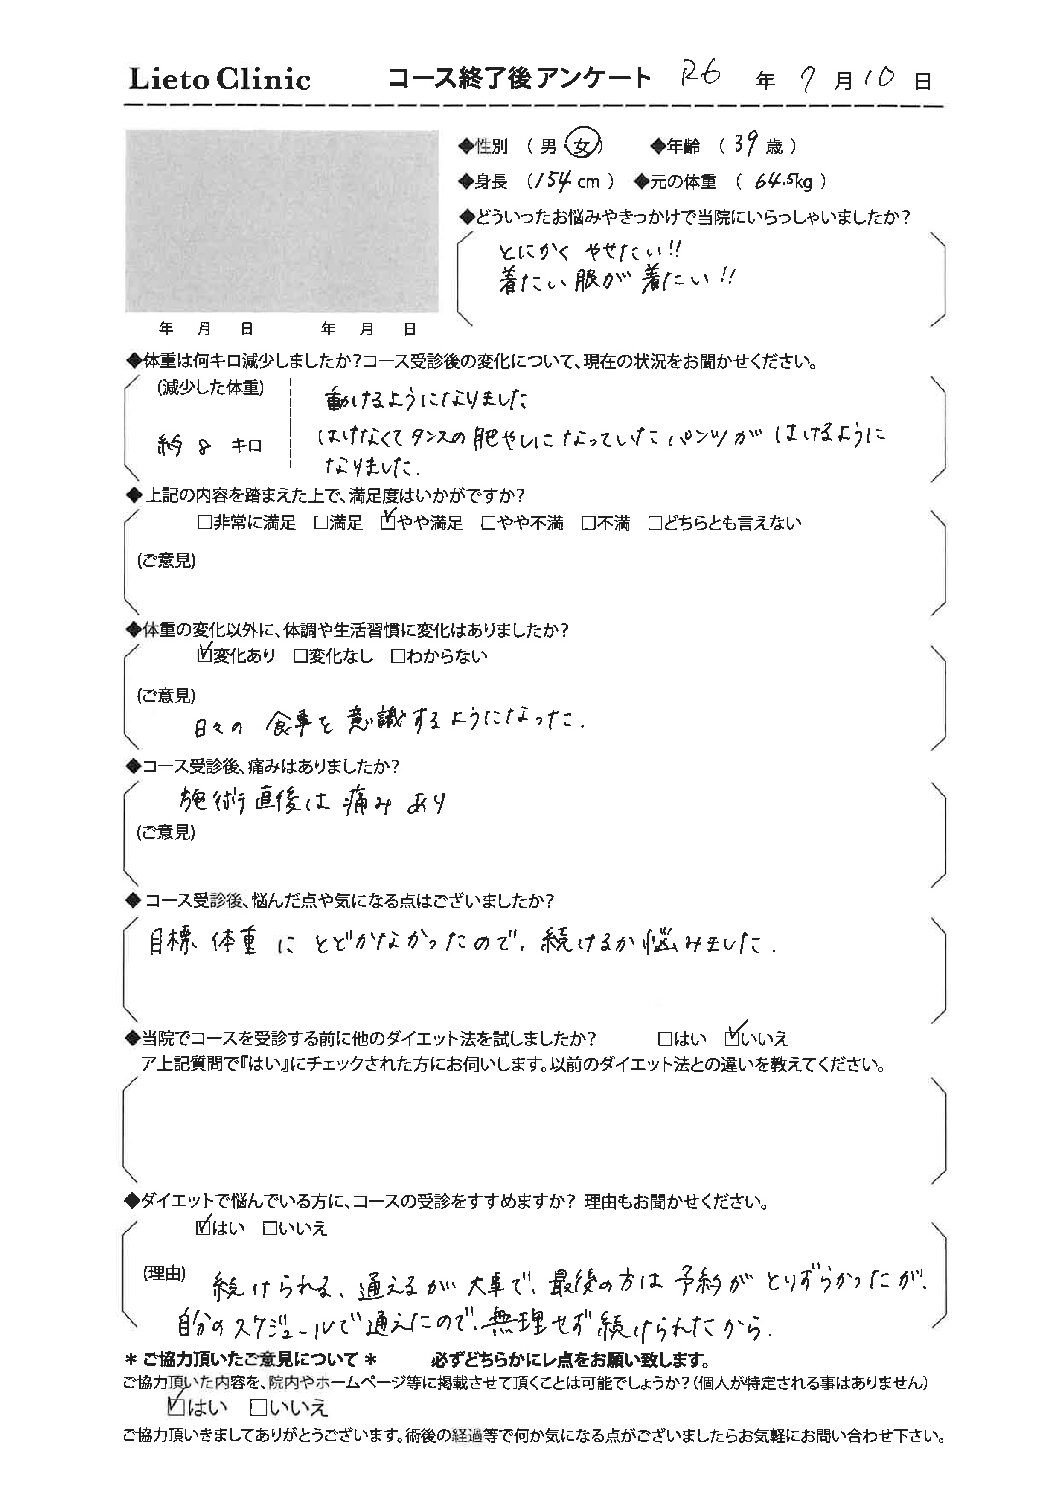 Lieto Clinic コース終了後アンケート R6 年 7 月 10 日
◆性別 ( 男 ・ 女 ) ◆年齢 ( 39 歳 )
◆身長 ( 154 cm ) ◆元の体重 ( 64.5kg )
◆どういったお悩みやきっかけで当院にいらっしゃいましたか?
とにかく やせたい!!
着たい服が着たい!!
年 月 日 年 月 日
◆体重は何キロ減少しましたか?コース受診後の変化について、現在の状況をお聞かせください。
(減少した体重)
動けるようになりました
約 8 キロ
はけなくてタンスの肥やしになっていたパンツがはけるように
なりました.
◆上記の内容を踏まえた上で、満足度はいかがですか?
□非常に満足 □満足 ☑やや満足 □やや不満 □不満 □どちらとも言えない
(ご意見)
◆体重の変化以外に、体調や生活習慣に変化はありましたか?
☑変化あり □変化なし □わからない
(ご意見)
日々の 食事を意識するようになった.
◆コース受診後、痛みはありましたか?
施術直後は痛みあり
(ご意見)
◆コース受診後、悩んだ点や気になる点はございましたか?
目標、体重にとどかなかったので、続けるか悩みました.
◆当院でコースを受診する前に他のダイエット法を試しましたか? □はい ☑いいえ
ア上記質問で『はい』にチェックされた方にお伺いします。以前のダイエット法との違いを教えてください。
◆ダイエットで悩んでいる方に、コースの受診をすすめますか? 理由もお聞かせください。
☑はい □いいえ
(理由) 続けられる、通えるが大事で、最後の方は予約がとりずらかったが、
自分のスケジュールで通えたので、無理せず続けられたから.
＊ご協力頂いたご意見について＊ 必ずどちらかにレ点をお願い致します。
ご協力頂いた内容を、院内やホームページ等に掲載させて頂くことは可能でしょうか?(個人が特定される事はありません)
☑はい □いいえ
ご協力頂きましてありがとうございます。術後の経過等で何か気になる点がございましたらお気軽にお問い合わせ下さい。